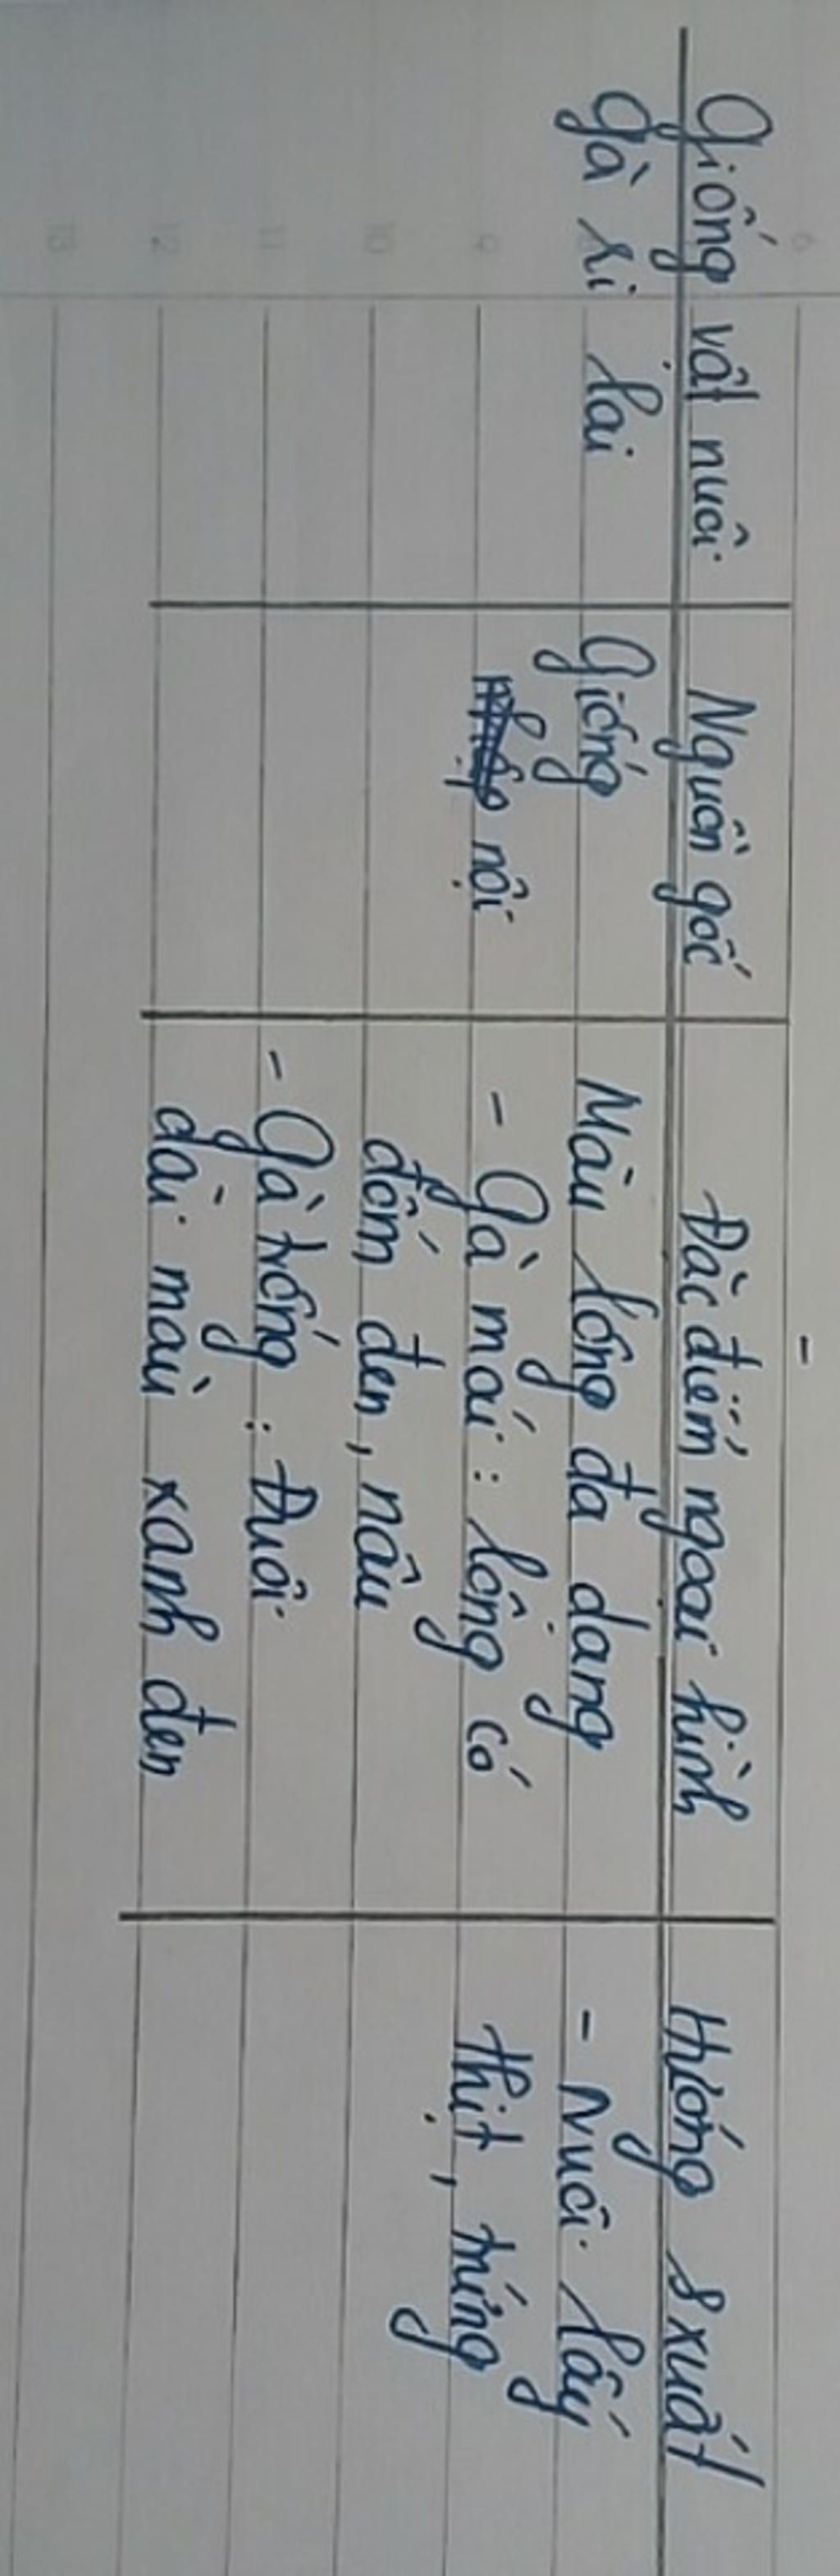 Giống vật nuôi Nguồn gốc Đặc điểm ngoại hình Hướng sxuất
Gà ri lai Giống Màu lông đa dạng - Nuôi lấy
nội - Gà mái: lông có thịt, trứng
đốm đen, nâu
- Gà trống: Đuôi
dài màu xanh đen